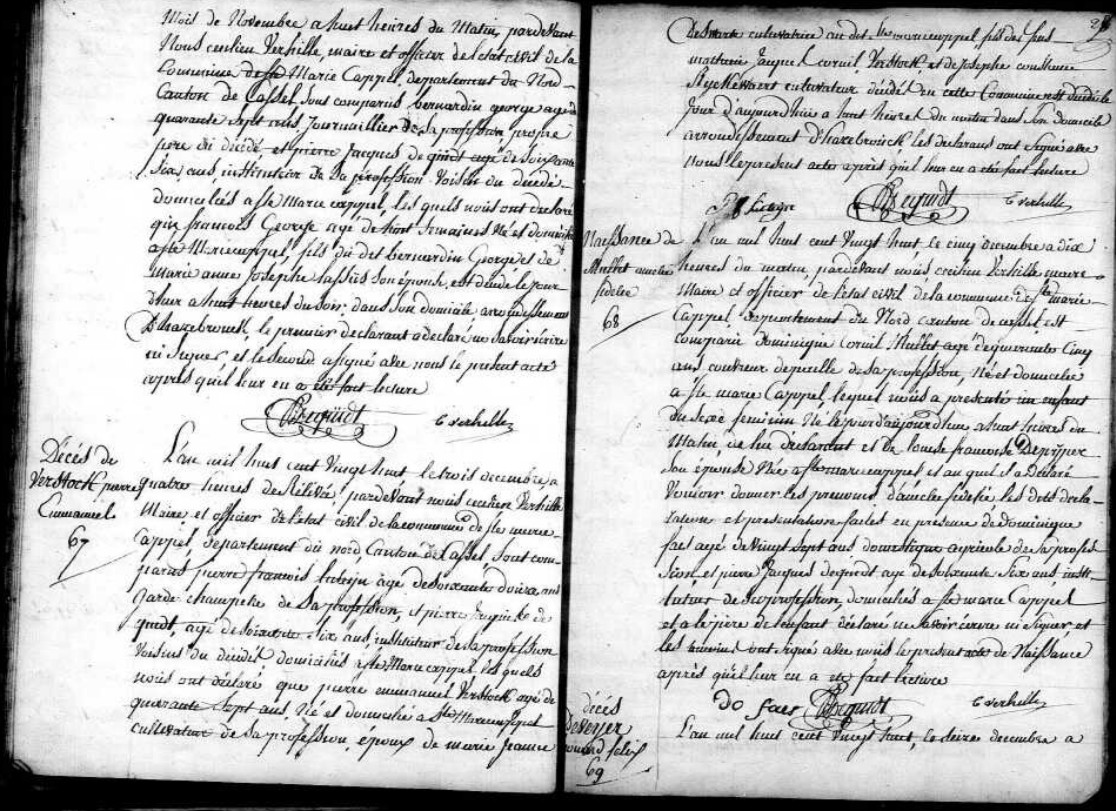 Mois de Novembre a huit heures du Matin, pardevant
Nous cecilien Verhille, maire et officier de l'état civil de la
Commune de Ste Marie Cappel, departement du Nord
Canton de Cassel, sont comparus bernardin george agé de
quarante sept ans, Journaillier de sa profession propre
pere du décédé, et pierre Jacques de quidt agé de soixante
six ans, instituteur de sa profession voisin du décédé
domiciliés a Ste Marie cappel, les quels nous ont declaré
que françois George agé de huit semaines né et domicilié
a Ste Mariecappel, fils du det bernardin George et de
marie anne Josephe tassüs son épouse, est décédé le jour
d'hier a huit heures du soir, dans son domicile arrondissement
D'hazebrouck, le premier declarant a declaré ne savoir écrire
ni signer, et le second a signé avec nous le present acte
après qu'il leur en a été fait lecture
Dequidt C verhille
Décés de
Verstock pierre
Emmanuel
67
L'an mil huit cent Vingt huit le trois decembre, a
quatre heures de Rélevée, pardevant nous cecilien Verhille
Maire, et officier de l'état civil de la commune de Ste marie
Cappel, departement du nord Canton de Cassel, sont com-
parus pierre francois ans
garde champetre de sa profession, et pierre Jacques de
quidt, agé de soixante six ans, instituteur de sa profession
Voisins du décédé, domiciliés a Ste Marie cappel les quels
nous ont déclaré que pierre emmanuel Verstock agé de
quarante sept ans, Né et domicilié a Ste Mariecappel
cultivateur de sa profession, époux de marie Jeanne
Desmarte cultivatrice au det Ste mariecappel, fils des feus
mathieu Jacques corneil Verstock, et de Josephe constance
cultivateur décédé en cette Commune est décédé le
Jour d'aujourd'hui a huit heures du matin dans son domicile
arrondissement d'hazebrouck, les declarans ont signé avec
nous le present acte après qu'il leur en a été fait lecture
Dequidt C verhille
Naissance de
Mullet amelie
fidelie
68
L'an mil huit cent Vingt huit le cinq decembre a dix
heures du matin, pardevant nous cecilien Verhille maire
Maire et officier de l'état civil de la commune de Ste marie
Cappel, departement du Nord canton de cassel est
comparu Dominique Corneil Mullet agé de quarante Cinq
ans couvreur de paille de sa profession, Né et domicilié
a Ste marie Cappel, lequel nous a presenté un enfant
du sexe feminin Né le jour d'aujourd'hui a huit heures du
Matin, de lui declarant et de louise francoise Depijper
son épouse Née a Ste mariecappel et au quel il a Déclaré
Vouloir donner les prenoms d'amelie fidelie les dets decla-
ration et presentation faites en presence de Dominique
faes agé de Vingt sept ans domestique agricole de sa profes-
sion et pierre Jacques dequidt agé de soixante six ans insti-
tuteur de sa profession, domiciliés a Ste marie Cappel
et a le père de l'enfant déclaré ne savoir écrire ni signer, et
les témoins ont signé avec nous le present acte de Naissance
après qu'il leur en a été fait lecture
Do faes Dequidt C verhille
décés
Deveyer
felix
69
L'an mil huit cent Vingt huit, le seize decembre a